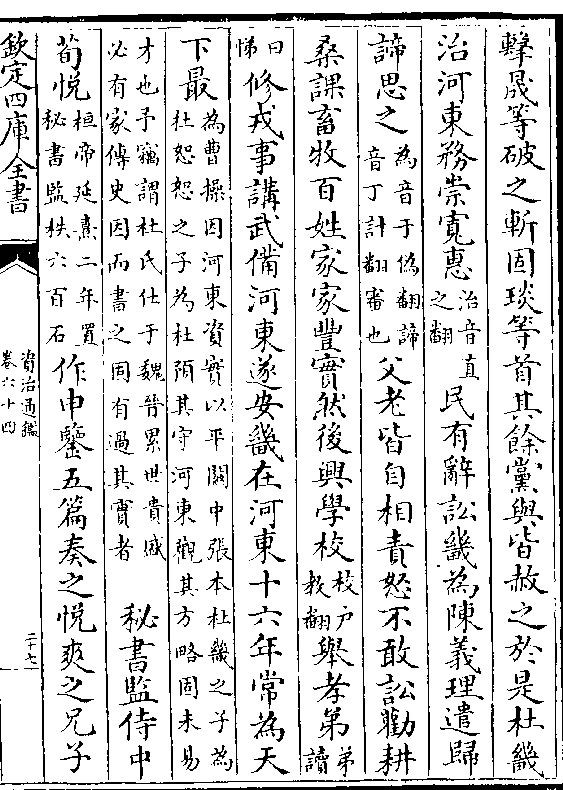 擊晟等破之斬固琰等首其餘黨與皆赦之於是杜畿
治河東務崇寬惠治音直之翻民有辭訟畿為陳義理遣歸
諦思之為音于偽翻諦音丁計翻審也父老皆自相責怒不敢訟勸耕
桑課畜牧百姓家家豐實然後興學校校戶教翻舉孝弟弟讀
曰悌修戎事講武備河東遂安畿在河東十六年常為天
下最為曹操因河東資實以平關中張本杜畿之子為杜恕恕之子為杜預其守河東觀其方略固未易
才也予竊謂杜氏仕于魏晉累世貴盛必有家傳史因而書之固有過其實者秘書監侍中
荀悅桓帝延熹二年置秘書監秩六百石作申鑒五篇奏之悅爽之兄子
欽定四庫全書
資治通鑑
卷六十四
二十七